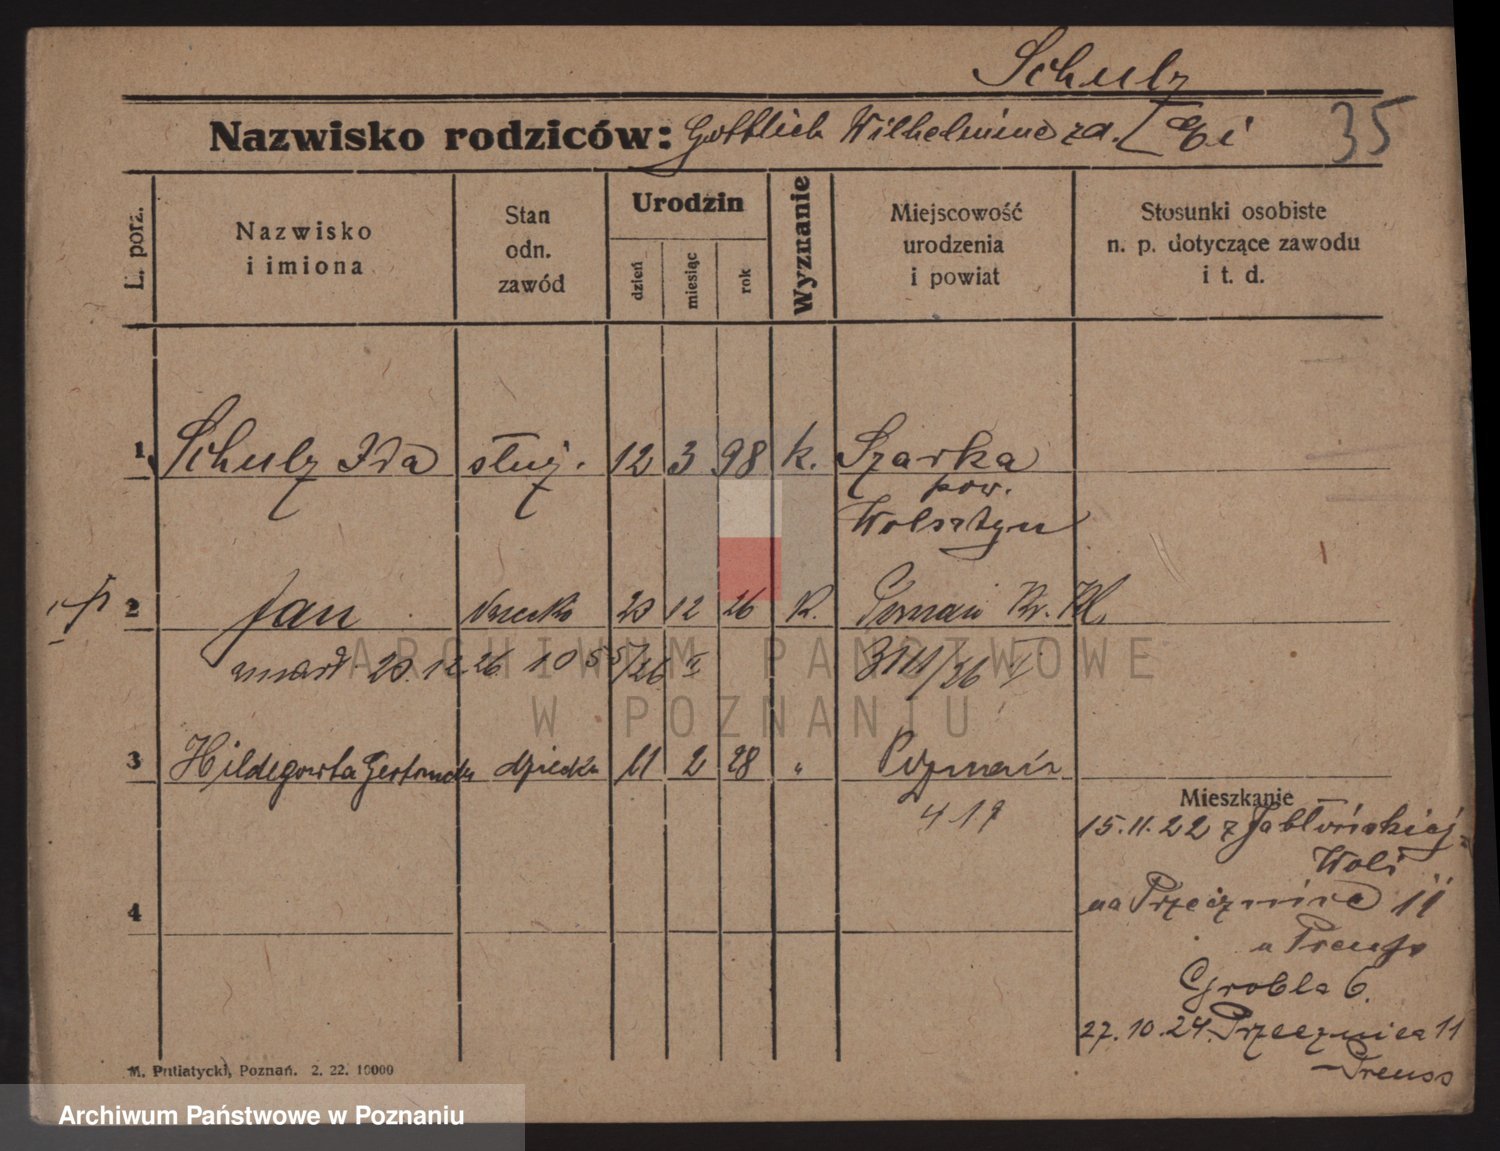 Schulz
Nazwisko rodziców: Gottlieb Wilhelmine zd.
35
L. porz.
Nazwisko
i imiona
Stan
odn.
zawód
Urodzin
dzień
miesiąc
rok
Wyznanie
Miejscowość
urodzenia
i powiat
Stosunki osobiste
n. p. dotyczące zawodu
i t. d.
1 Schulz Ida służ. 12 3 98 k. Szarka
pow.
Wolsztyn
2 Jan dziecko 20 12 26 k. Poznań
zmarł 20.12.26 1055/26 II
3 Hildegarta Gertruda dziecko 11 2 28 " Poznań
417
4
Mieszkanie
15.11.22 z Jabłońskiej
Woli
na Przecznica 11
u Preuss
Grobla 6.
27.10.24. Przecznica 11
- Preuss
M. Putiatycki, Poznań. 2. 22. 10000
ARCHIWUM PAŃSTWOWE
W POZNANIU
Archiwum Państwowe w Poznaniu